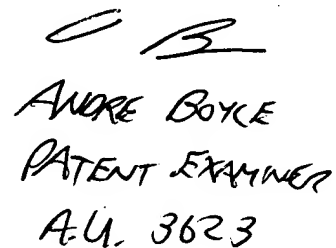 ANDRE BOYCE
PATENT EXAMINER
A.U. 3623